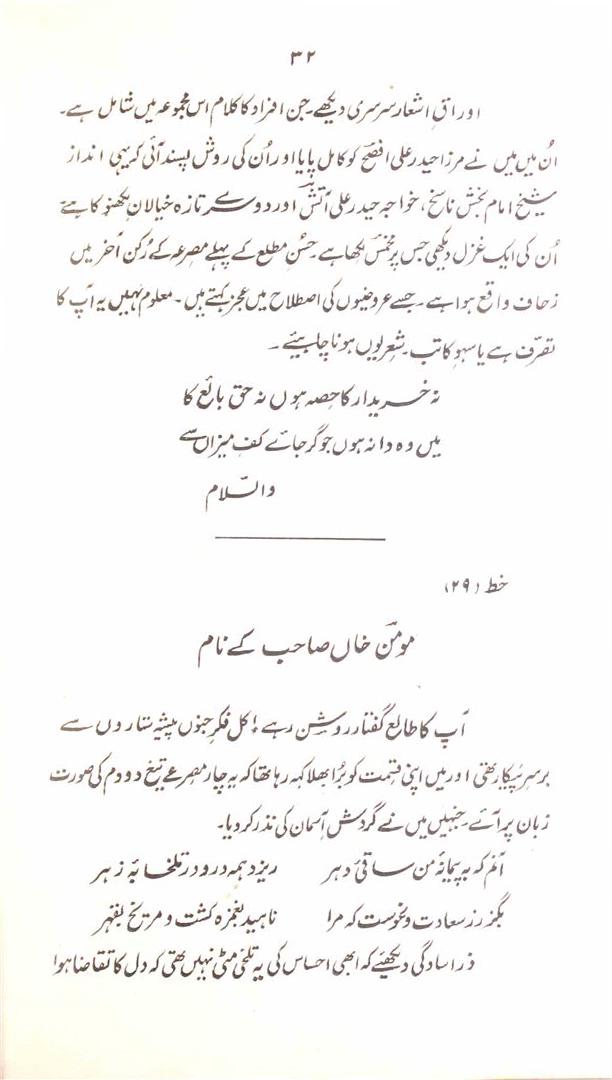 ۳۲
اوراقِ اشعار سرسری دیکھے۔ جن افراد کا کلام اس مجموعہ میں شامل ہے۔
اُن میں میں نے مرزا حیدر علی افصحؔ کو کامل پایا اور اُن کی روش پسند آئی کہ یہی انداز
شیخ امام بخش ناسخؔ، خواجہ حیدر علی آتشؔ اور دوسرے تازہ خیالانِ لکھنؤ کا ہے
اُن کی ایک غزل دیکھی جس پر مخمس لکھا ہے حسنِ مطلع کے پہلے مصرعہ کے رُکن آخر میں
زحاف واقع ہوا ہے۔ جسے عروضیوں کی اصطلاح میں عجز کہتے ہیں۔ معلوم نہیں یہ آپ کا
تصرّف ہے یا سہوِ کاتب۔ شعر یوں ہونا چاہیئے۔
نہ خریدار کا حصہ ہوں نہ حق بائع کا
میں وہ دانہ ہوں جو گر جائے کفِ میزاں سے
والسّلام
خط (۲۹)
مومنؔ خاں صاحب کے نام
آپ کا طالعِ گفتار روشن رہے! کل فکرِ جنوں پیشہ ستاروں سے
برسرِ پیکار تھی اور میں اپنی قسمت کو بُرا بھلا کہہ رہا تھا کہ یہ چار مصرعے تیغِ دو دم کی صورت
زبان پر آئے۔ جنہیں میں نے گردشِ آسمان کی نذر کر دیا۔
آنم کہ بہ پیمانۂ من ساقئ دہر ریزد ہمہ درد و درد تلخابۂ زہر
بگزر ز سعادت و نحوست کہ مرا ناہید بغمزہ کشت و مریخ بقہر
ذرا سادگی دیکھئے کہ ابھی احساس کی یہ تلخی مٹی نہیں تھی کہ دل کا تقاضا ہوا